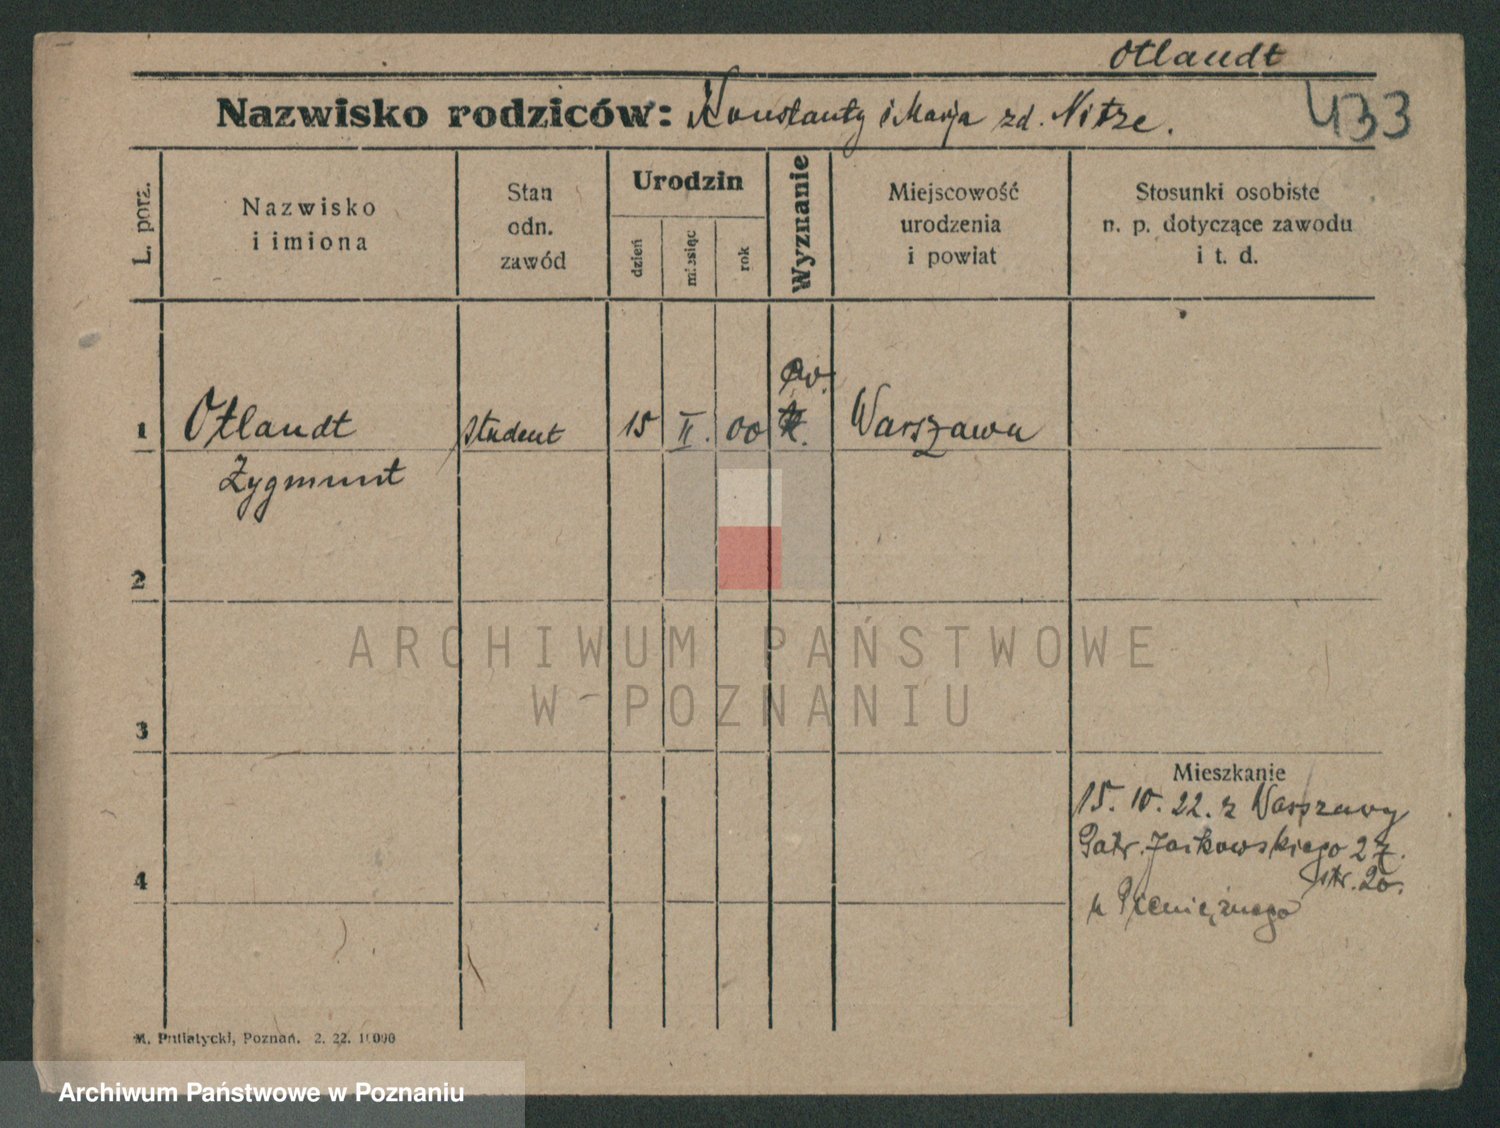 Otlandt
Nazwisko rodziców: Konstanty i Marja zd. Nitze.
433
L. porz.
Nazwisko
i imiona
Stan
odn.
zawód
Urodzin
dzień
miesiąc
rok
Wyznanie
Miejscowość
urodzenia
i powiat
Stosunki osobiste
n. p. dotyczące zawodu
i t. d.
1
Otlandt
Zygmunt
student
15
II.
00
ew.
Warszawa
2
3
4
Mieszkanie
15. 10. 22. z Warszawy
Patr. Jackowskiego 27.
ptr. 20.
u Pieniężnego
M. Putiatycki, Poznań. 2. 22. 10000
ARCHIWUM PAŃSTWOWE
W POZNANIU
Archiwum Państwowe w Poznaniu